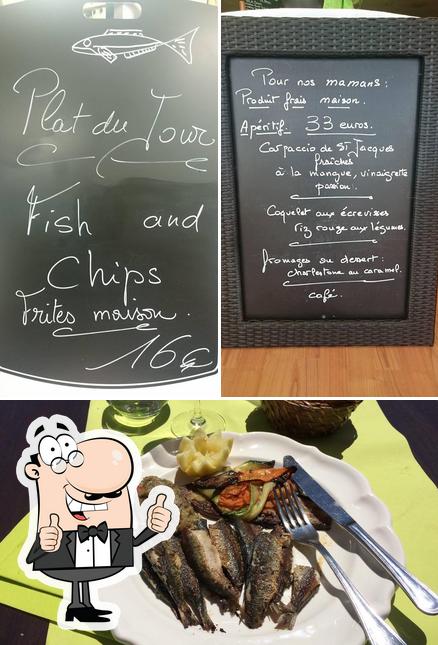 Plat du Jour
Fish and
Chips
Frites maison.
16€
Pour nos mamans :
Produit frais maison.
Apéritif. 33 euros.
Carpaccio de St Jacques
fraîches
à la mangue, vinaigrette
passion.
Coquelet aux écrevisses
riz rouge aux légumes.
fromages ou dessert :
charlestone au caramel.
café.